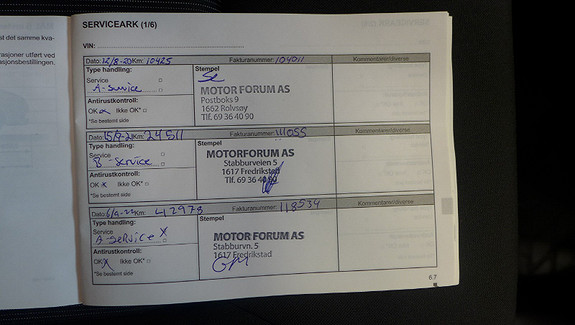 st det samme kva-
asjoner utført ved
asjonsbestillingen.
SERVICEARK (1/6)
VIN:
Dato: 12/8-20 Km: 10425 Fakturanummer: 104011 Kommentarer/diverse
Type handling: Stempel
Service
A-Service
MOTOR FORUM AS
Postboks 9
Antirustkontroll: 1662 Rolvsøy
OK Ikke OK* Tlf. 69 36 40 90
*Se bestemt side
Dato: 15/9-21 Km: 24511 Fakturanummer: 111055 Kommentarer/diverse
Type handling: Stempel
Service
B-Service
MOTORFORUM AS
Stabburveien 5
Antirustkontroll: 1617 Fredrikstad
OK x Ikke OK* Tlf. 69 36 40 90
*Se bestemt side
Dato: 6/9-22 Km: 42978 Fakturanummer: 118534 Kommentarer/diverse
Type handling: Stempel
Service
A-Service X
MOTOR FORUM AS
Stabburvn. 5
Antirustkontroll: 1617 Fredrikstad
OK X Ikke OK*
*Se bestemt side
6.7